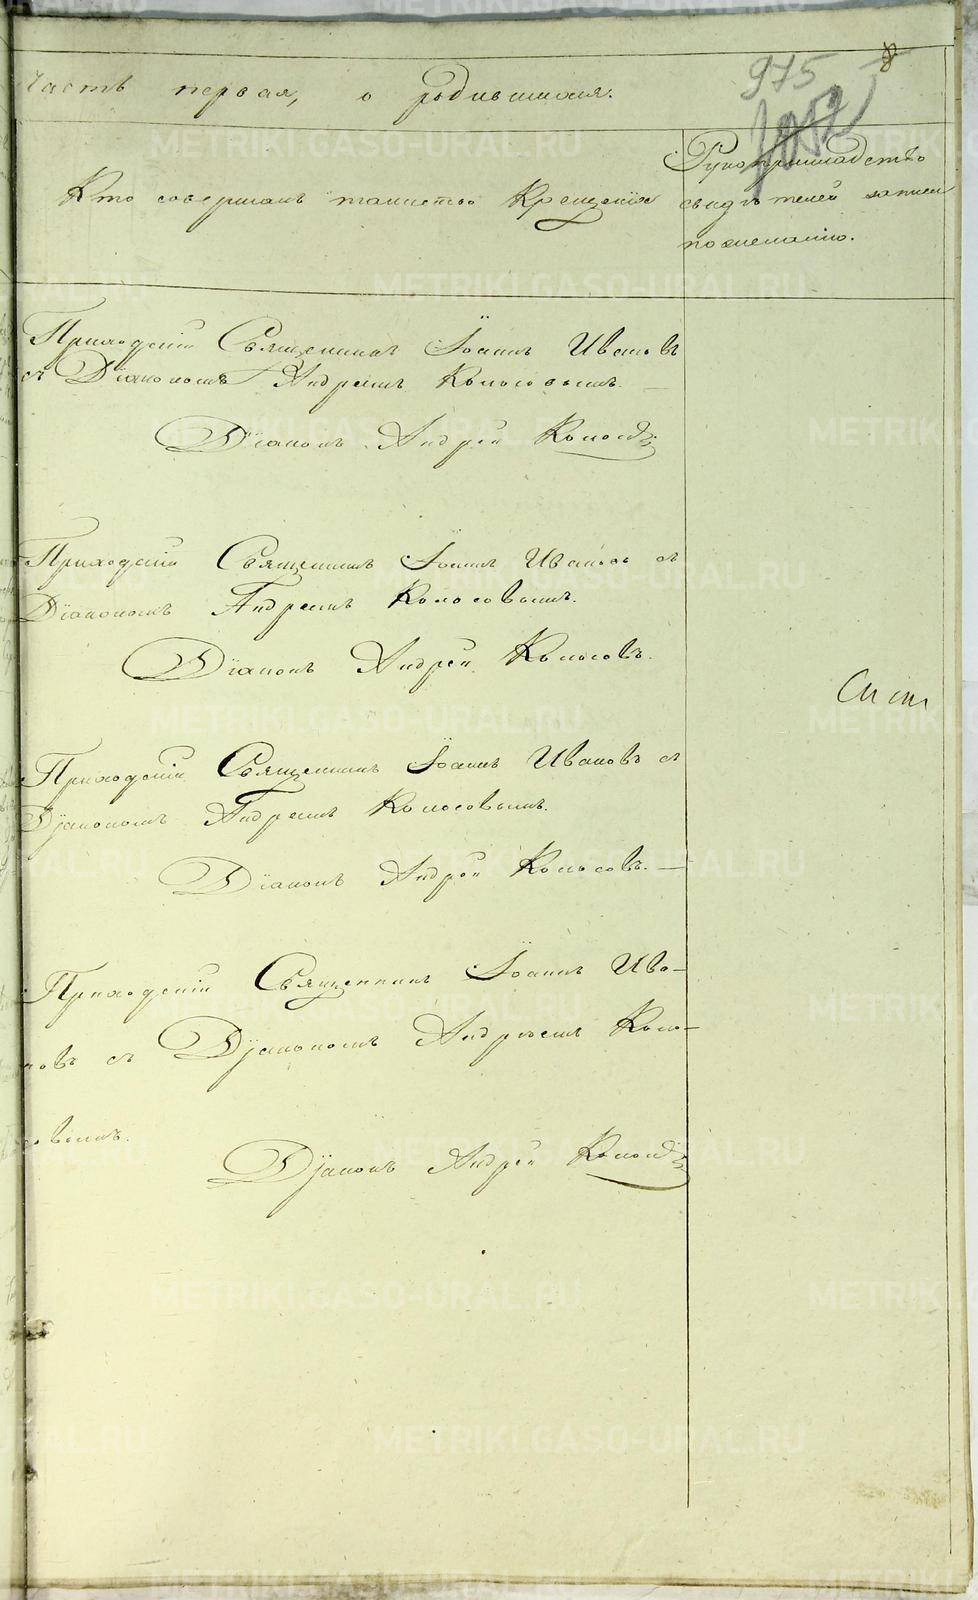 8
975
Часть первая, о родившихся.
Кто совершалъ таинство Крещенія
Рукоприкладство
свидѣтелей записи
по желанію.
Приходскій Священникъ Іоаннъ Ивановъ
съ Діакономъ Андреемъ Колосовымъ.
Діаконъ Андрей Колосовъ
Приходскій Священникъ Іоаннъ Ивановъ съ
Діакономъ Андреемъ Колосовымъ.
Діаконъ Андрей Колосовъ.
Приходскій Священникъ Іоаннъ Ивановъ съ
Діакономъ Андреемъ Колосовымъ.
Діаконъ Андрей Колосовъ.
Приходскій Священникъ Іоаннъ Ива-
новъ съ Діакономъ Андреемъ Коло-
совымъ.
Діаконъ Андрей Колосовъ
METRIKI.GASO-URAL.RU